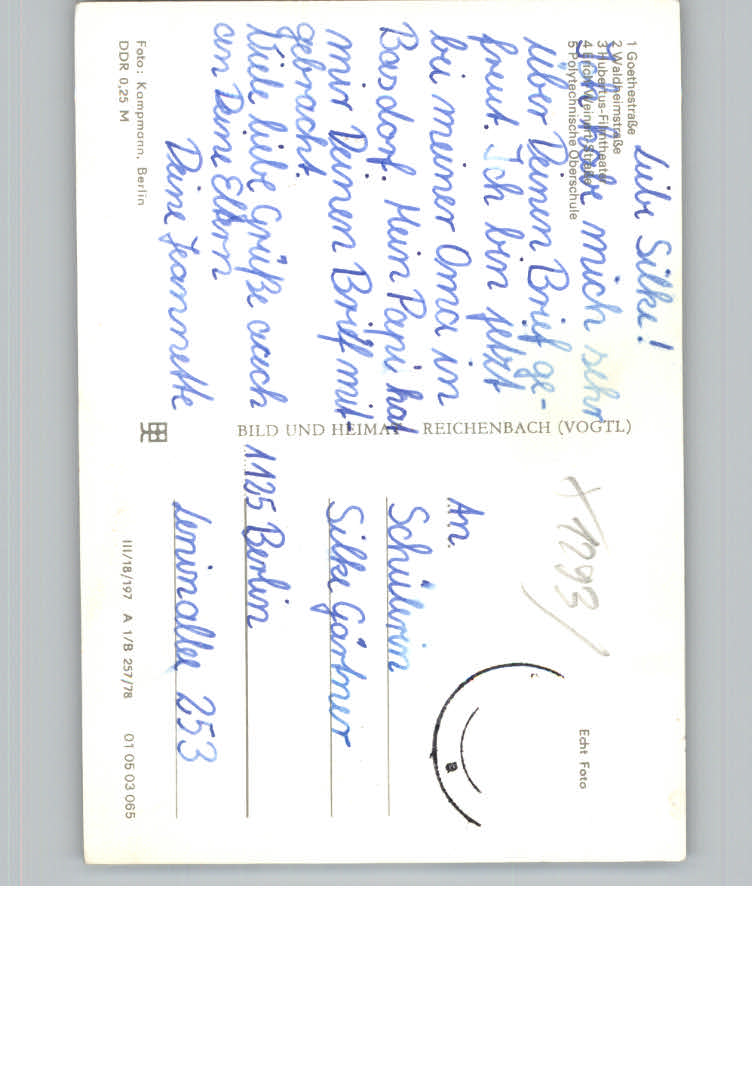 1 Goethestraße
2 Waldheimstraße
3 Hubertus-Filmtheater
4 Erich-Weinert-Straße
5 Polytechnische Oberschule
Liebe Silke!
Ich habe mich sehr
über Deinen Brief ge-
freut. Ich bin jetzt
bei meiner Oma in
Basdorf. Mein Papi hat
mir Deinen Brief mit-
gebracht.
Viele liebe Grüße auch
an Deine Eltern
Deine Jeannette
Foto: Kampmann, Berlin
DDR 0,25 M
BILD UND HEIMAT REICHENBACH (VOGTL)
Echt Foto
An
Schülerin
Silke Gärtner
1125 Berlin
Leninallee 253
III/18/197 A 1/B 257/78 01 05 03 065